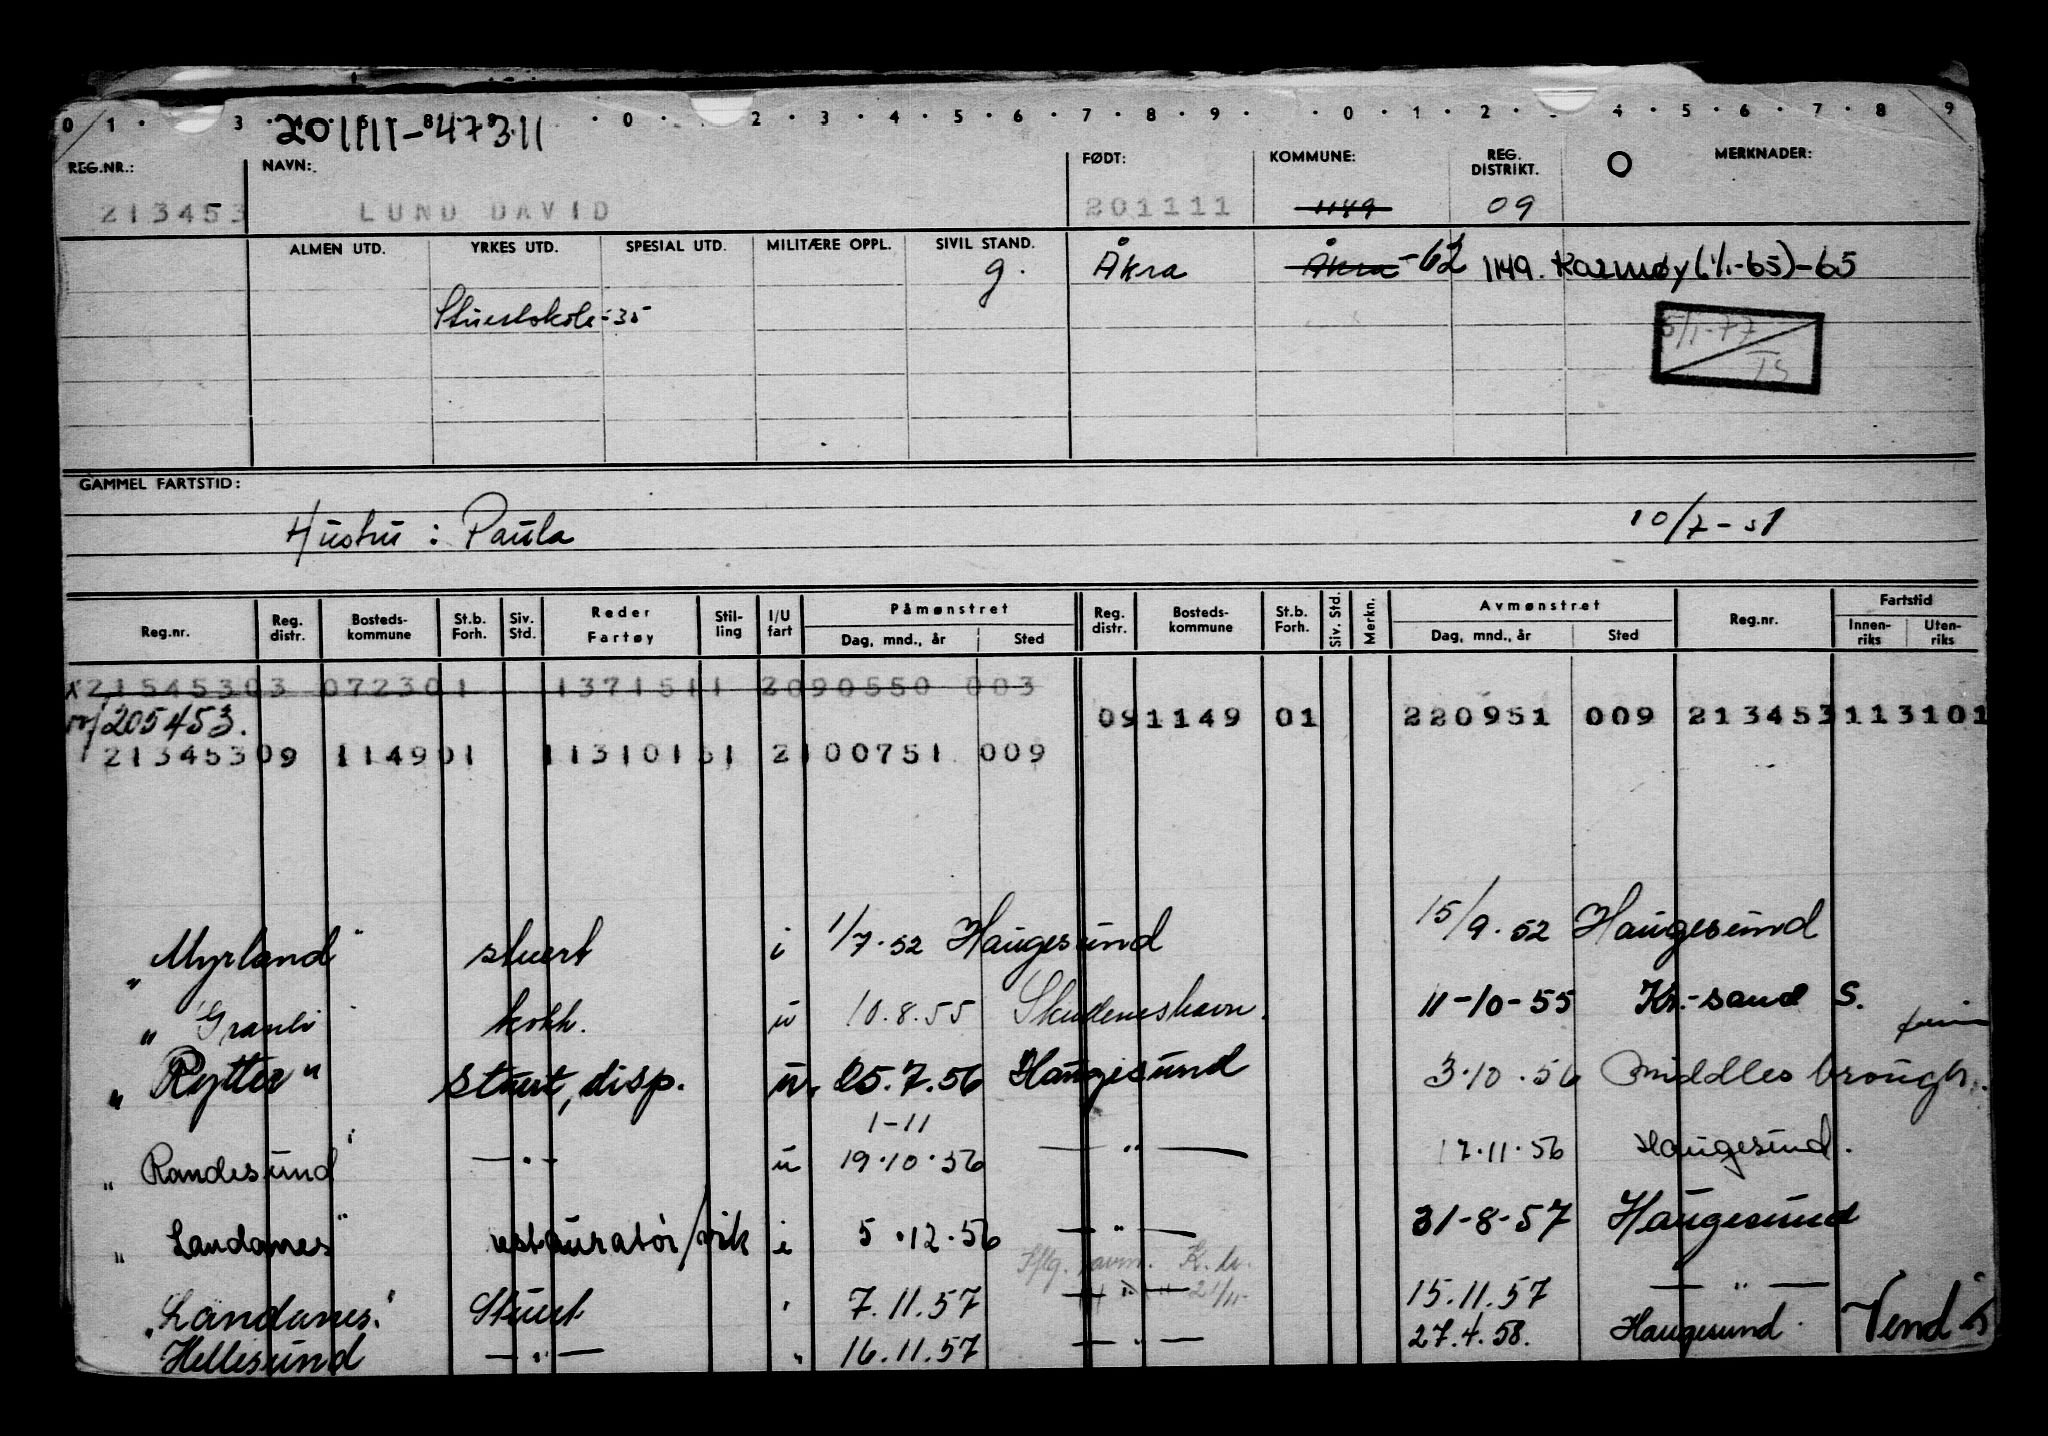 0 1 . 3 . . 8 . 0 . 2 . 3 . 4 . 5 . 6 . 7 . 8 . 9 . . 0 . 1 . 2 . . 4 . 5 . 6 . 7 . 8 . 9
201111-47311
REG.NR.: NAVN: FØDT: KOMMUNE: REG. DISTRIKT. O MERKNADER:
213453 LUND DAVID 201111 1149 09
ALMEN UTD. YRKES UTD. SPESIAL UTD. MILITÆRE OPPL. SIVIL STAND.
g. Åkra Åkra -62 1149. Karmøy (1/1-65)-65
Stuertskole-35
5/1-77
TS
GAMMEL FARTSTID:
Hustru : Paula 10/7-51
Reg.nr. Reg. distr. Bosteds-kommune St.b. Forh. Siv. Std. Reder Fartøy Stil-ling I/U fart Påmønstret Dag, mnd., år Sted Reg. distr. Bosteds-kommune St.b. Forh. Siv. Std. Merkn. Avmønstret Dag, mnd., år Sted Reg.nr. Fartstid Innen-riks Uten-riks
x 21545303 072301 1371511 2090550 003
205453.
091149 01 220951 009 213453113101
21345309 114901 11310151 2100751 009
"Myrland" stuert i 1/7.52 Haugesund 15/9.52 Haugesund
"Granli" kokk. u 10.8.55 Skudeneshavn. 11-10-55 Kr.-sand S.
"Rytter" stuert, disp. u. 25.7.56 Haugesund 3.10.56 Middlesbrough.
1-11
"Randesund" — " — u 19.10.56 — " — 17.11.56 Haugesund.
"Landanes" restauratør/vik i 5.12.56 — " — 31-8-57 Haugesund
"Landanes" Stuert " 7.11.57 — " — 21/11. 15.11.57 — " —
Hellesund — " — " 16.11.57 — " — 27.4.58. Haugesund. Vend